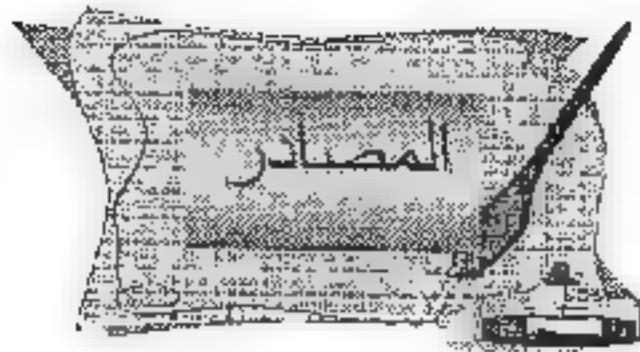 المصادر